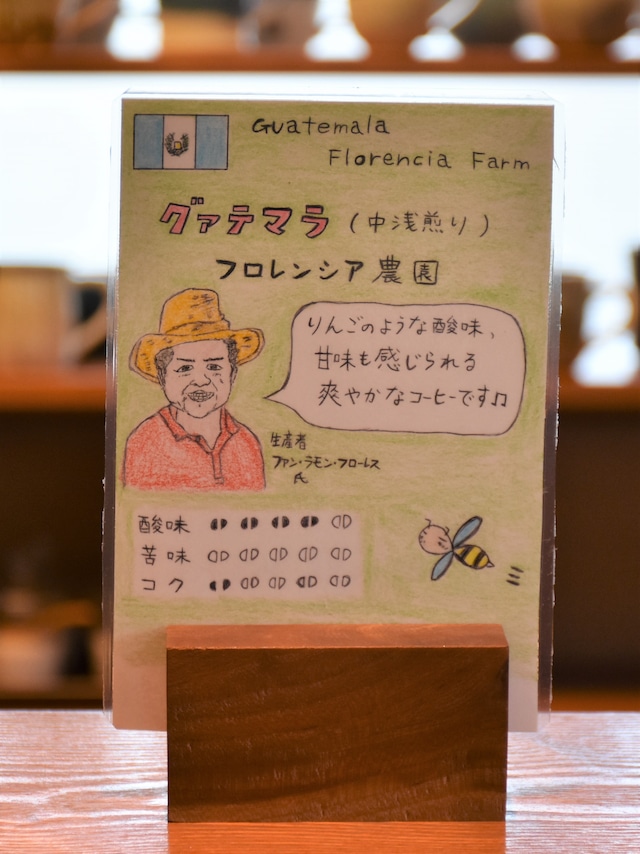 Guatemala
Florencia Farm
グァテマラ（中浅煎り）
フロレンシア農園
りんごのような酸味、
甘味も感じられる
爽やかなコーヒーです♫
生産者
ファン・ラモン・フローレス
氏
酸味
苦味
コク